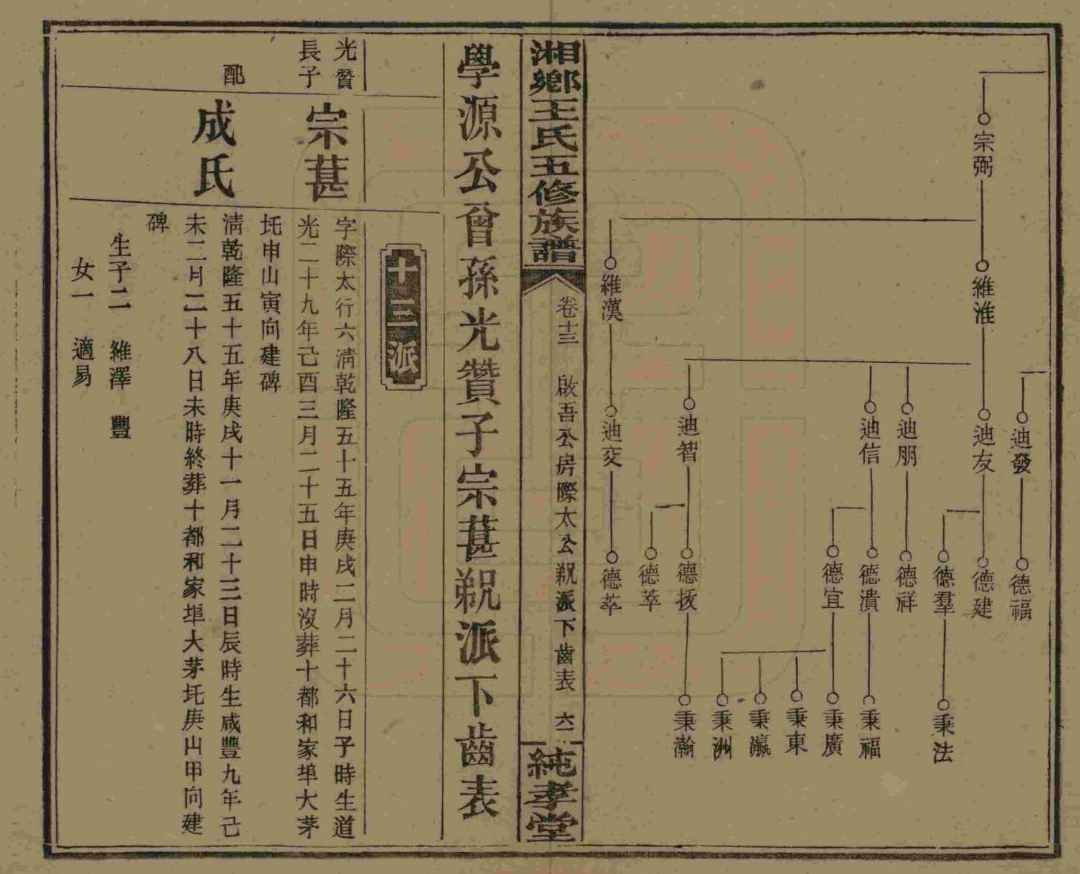 宗弼
維淮
維漢
迪發
迪友
迪朋
迪信
迪智
迪交
德福
德建
德羣
德祥
德潰
德宜
德拔
德萃
德苹
秉法
秉福
秉廣
秉東
秉瀛
秉洲
秉瀚
湘鄉王氏五修族譜
卷十三
啟吾公房際太公䚷派下齒表
六
純孝堂
學源公曾孫光贊子宗葚䚷派下齒表
十三派
光贊
長子
宗葚
字際太行六淸乾隆五十五年庚戌二月二十六日子時生道
光二十九年己酉三月二十五日申時沒葬十都和家埠大茅
坵申山寅向建碑
配
成氏
淸乾隆五十五年庚戌十一月二十三日辰時生咸豐九年己
未二月二十八日未時終葬十都和家埠大茅坵庚山甲向建
碑
生子二 維澤 豐
女一 適易